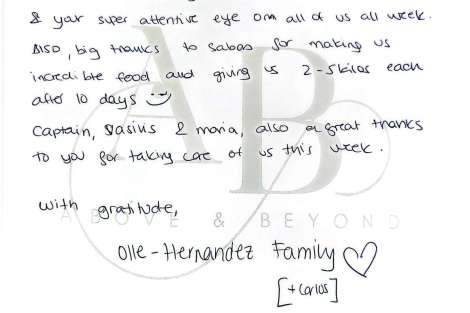 & your super attentive eye on all of us all week.
Also, big thanks to Sabas for making us
incredible food and giving us 2-5 kilos each
after 10 days
Captain, Vasilis & maria, also a great thanks
to you for taking care of us this week.
With gratitude,
AB
ABOVE & BEYOND
Olle-Hernandez Family
[+ Carlos]